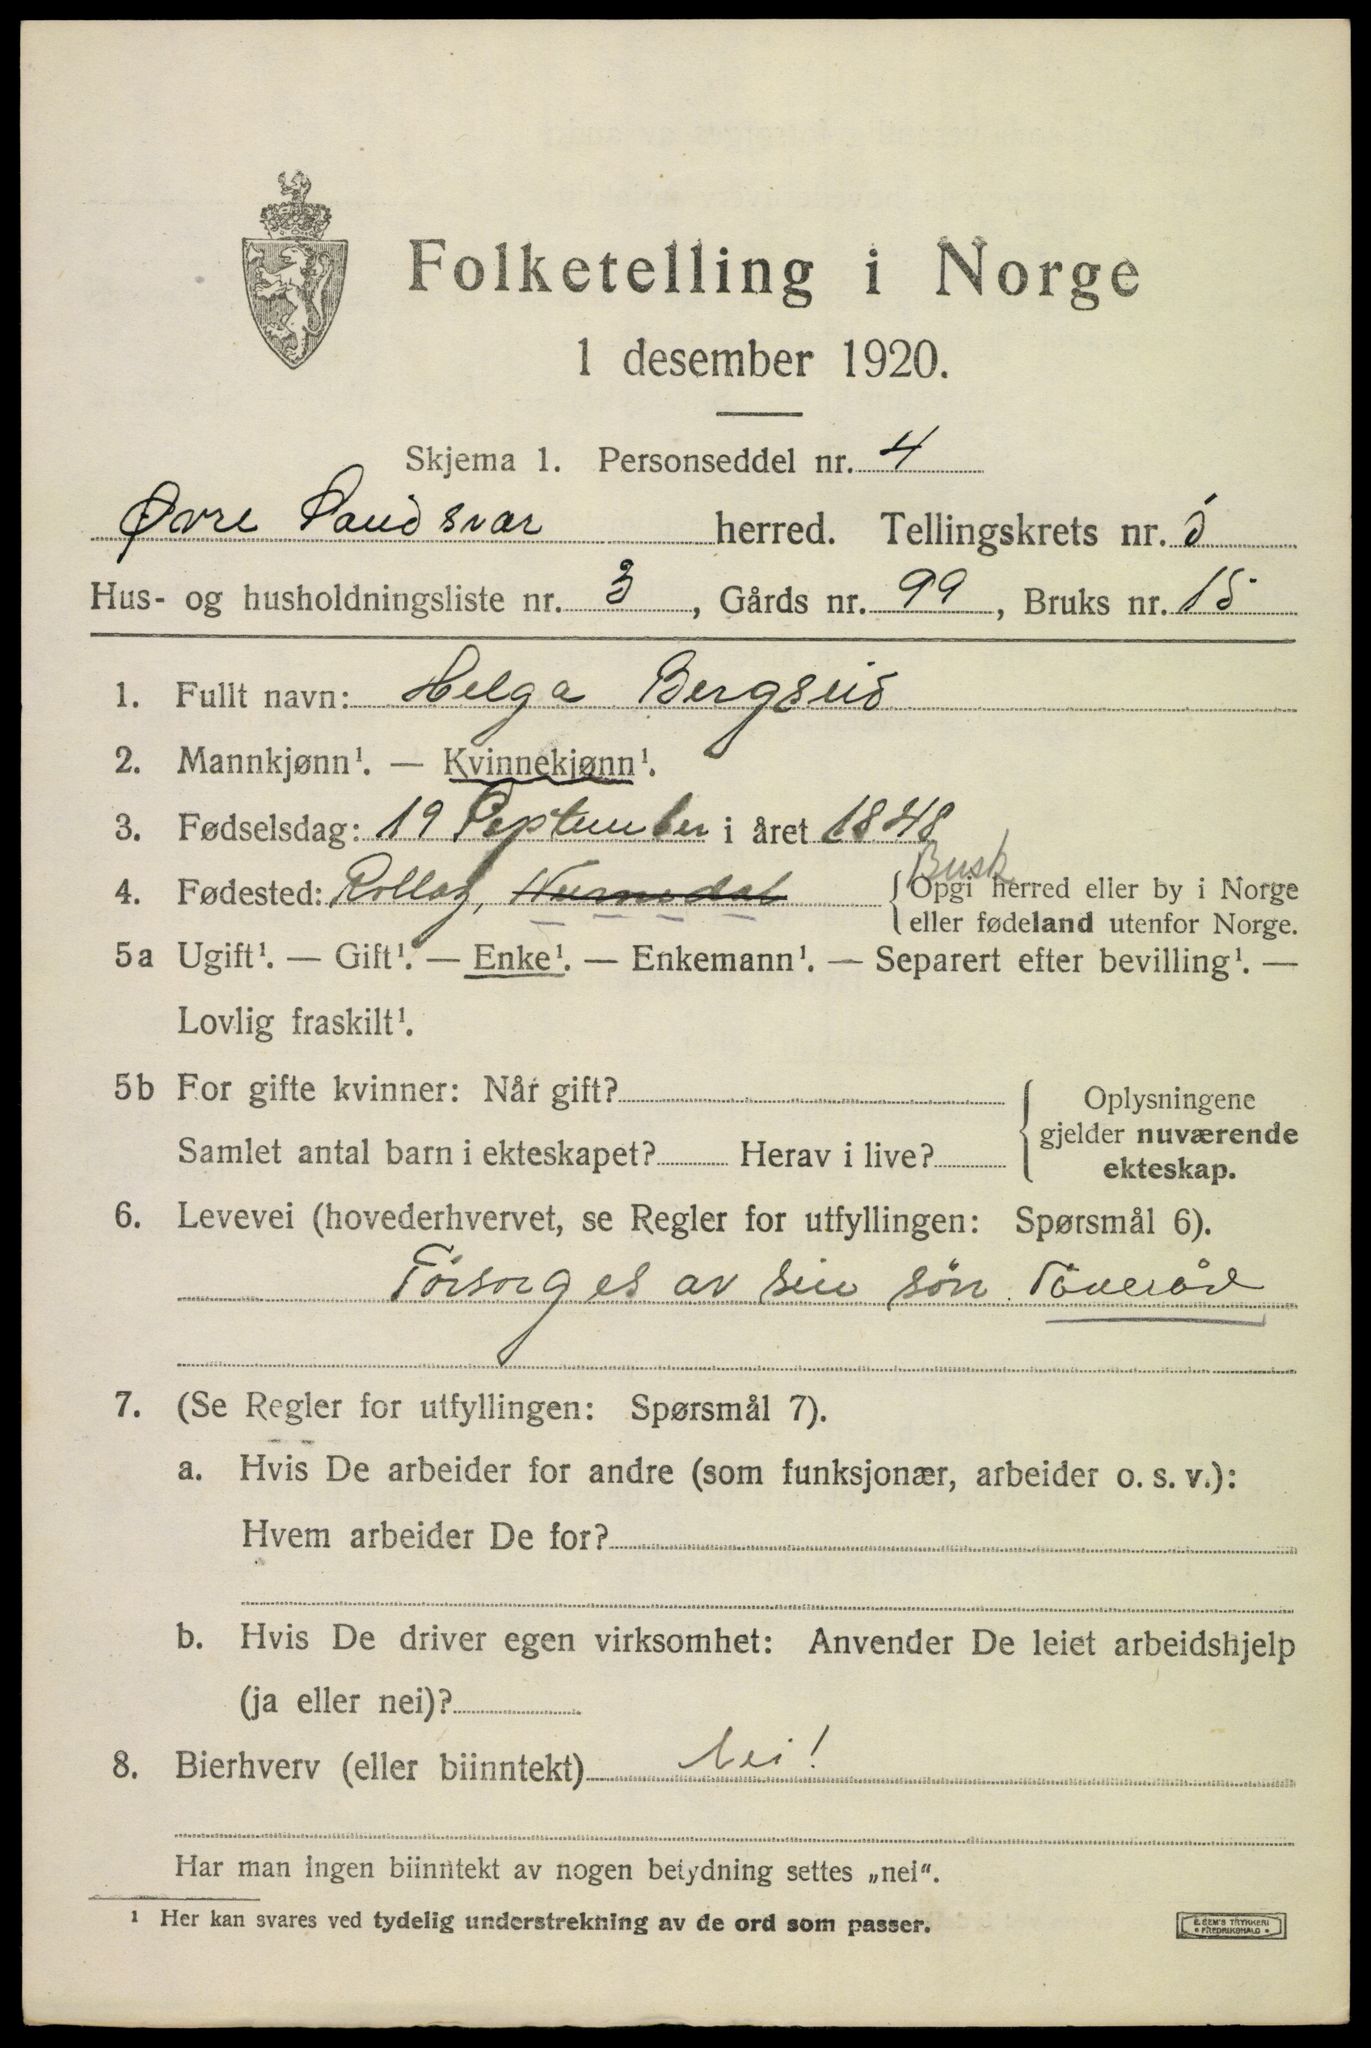 Folketelling i Norge
1 desember 1920.
Skjema 1. Personseddel nr. 4
Øvre Sandsvær herred. Tellingskrets nr. 5
Hus- og husholdningsliste nr. 3, Gårds nr. 99, Bruks nr. 15
1. Fullt navn: Helga Bergseid
2. Mannkjønn¹. — Kvinnekjønn¹.
3. Fødselsdag: 19 September i året 1848
Busk
4. Fødested: Rollag, Numedal {Opgi herred eller by i Norge
eller fødeland utenfor Norge.
5a Ugift¹. — Gift¹. — Enke¹. — Enkemann¹. — Separert efter bevilling¹. —
Lovlig fraskilt¹.
5b For gifte kvinner: Når gift? Oplysningene
gjelder nuværende
Samlet antal barn i ekteskapet? Herav i live? ekteskap.
6. Levevei (hovederhvervet, se Regler for utfyllingen: Spørsmål 6).
Forsorges av sin søn.
7. (Se Regler for utfyllingen: Spørsmål 7).
a. Hvis De arbeider for andre (som funksjonær, arbeider o. s. v.):
Hvem arbeider De for?
b. Hvis De driver egen virksomhet: Anvender De leiet arbeidshjelp
(ja eller nei)?
8. Bierhverv (eller biinntekt) Nei!
Har man ingen biinntekt av nogen betydning settes „nei“.
¹ Her kan svares ved tydelig understrekning av de ord som passer.
E. SEM'S TRYKKERI
• FREDRIKSHALD •